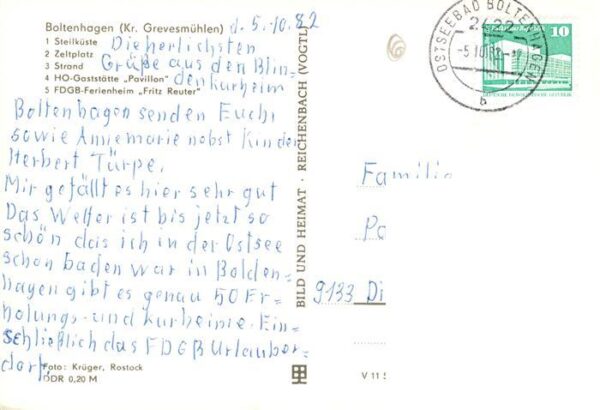 Boltenhagen (Kr. Grevesmühlen)
d. 5.10.82
1 Steilküste
2 Zeltplatz
3 Strand
4 HO-Gaststätte „Pavillon"
5 FDGB-Ferienheim „Fritz Reuter"
Die herlichsten
Grüße aus den Blin=
denkurheim
Boltenhagen senden Euch
sowie Annemarie nebst Kinder
Herbert Türpe.
Mir gefällt es hier sehr gut
Das Wetter ist bis jetzt so
schön das ich in der Ostsee
schon baden war in Bolden=
hagen gibt es genau 50 Er=
holungs- und kurheime. Ein=
schließlich das FDGB Urlauber=
dorf.
Foto: Krüger, Rostock
DDR 0,20 M
BILD UND HEIMAT · REICHENBACH (VOGTL
V 11
OSTSEEBAD BOLTENHAGEN
2422
b
10
Familie
9133 Di